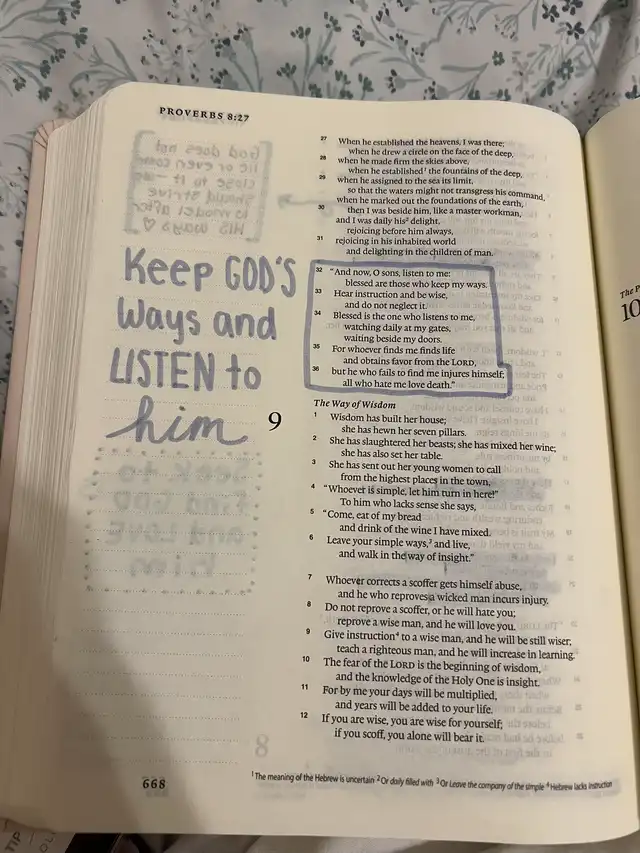 PROVERBS 8:27
27 When he established the heavens, I was there;
when he drew a circle on the face of the deep,
28 when he made firm the skies above,
when he established¹ the fountains of the deep,
29 when he assigned to the sea its limit,
so that the waters might not transgress his command,
when he marked out the foundations of the earth,
30 then I was beside him, like a master workman,
and I was daily his² delight,
rejoicing before him always,
31 rejoicing in his inhabited world
and delighting in the children of man.
32 "And now, O sons, listen to me:
blessed are those who keep my ways.
33 Hear instruction and be wise,
and do not neglect it.
34 Blessed is the one who listens to me,
watching daily at my gates,
waiting beside my doors.
35 For whoever finds me finds life
and obtains favor from the LORD,
36 but he who fails to find me injures himself;
all who hate me love death."
Keep GOD'S
Ways and
LISTEN to
him
9
The Way of Wisdom
1 Wisdom has built her house;
she has hewn her seven pillars.
2 She has slaughtered her beasts; she has mixed her wine;
she has also set her table.
3 She has sent out her young women to call
from the highest places in the town,
4 "Whoever is simple, let him turn in here!"
To him who lacks sense she says,
5 "Come, eat of my bread
and drink of the wine I have mixed.
6 Leave your simple ways,³ and live,
and walk in the way of insight."
7 Whoever corrects a scoffer gets himself abuse,
and he who reproves a wicked man incurs injury.
8 Do not reprove a scoffer, or he will hate you;
reprove a wise man, and he will love you.
9 Give instruction⁴ to a wise man, and he will be still wiser;
teach a righteous man, and he will increase in learning.
10 The fear of the LORD is the beginning of wisdom,
and the knowledge of the Holy One is insight.
11 For by me your days will be multiplied,
and years will be added to your life.
12 If you are wise, you are wise for yourself;
if you scoff, you alone will bear it.
¹ The meaning of the Hebrew is uncertain ² Or daily filled with ³ Or Leave the company of the simple ⁴ Hebrew lacks instruction
668
The P
10